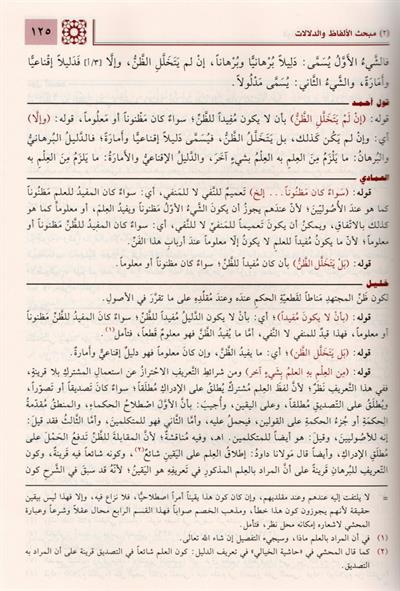 (٢) مبحث الألفاظ والدلالات
١٢٥
فالشيءُ الأوَّلُ يُسمَّى: دَلِيلاً بُرْهانيًّا وبُرْهاناً، إنْ لم يَتَخَلَّلِ الظَّنُّ، وإلَّا [٣/أ] فَدَلِيلاً إقناعيًّا
وأمَارَةً، والشيءُ الثاني: يُسَمَّى مَدْلُولاً.
قول أحمد
قوله: (إنْ لَمْ يَتَخَلَّلِ الظَّنُّ) بأن لا يكون مُفِيداً للظَّنِّ؛ سواءٌ كان مظنوناً أو معلُوماً، قوله: (وإلَّا)
أي: وإن لَمْ يَكُن كَذلك، بل يَتَخَلَّل الظَّن، فيُسمَّى دَليلاً إقناعيًّا وأمارة؛ فالدَّليلُ البُرهانيُّ
والبُرهان: ما يَلْزَمُ مِنَ العِلم به العِلمُ بشيءٍ آخرَ، والدَّليلُ الإقناعيُّ والأمارةُ: ما يَلزَمُ مِنَ العِلمِ بِهِ
العمادي
قوله: (سَوَاءٌ كان مَظْنُوناً... إلخ) تَعميمٌ للنَّفي لا للمَنفي، أي: سواءٌ كان المفيدُ للعلم مَظنُوناً
كما هو عندَ الأُصُوليِّينَ؛ لأنَّ عندَهم يجوزُ أن يكونَ الشَّيءُ الأوَّلُ مظنوناً ويفيدُ العِلمَ، أو معلوماً كما هو
كذلك بالاتِّفاقِ، ويمكنُ أن يكونَ تَعميماً للمَنفيِّ لا للنَّفي، أي: سواءٌ كان المفيدُ للظَّنِّ مظنوناً أو
معلوماً؛ لأنَّ ما يكونُ مُفيداً للعلمِ لا يكونُ إلَّا معلوماً عندَ أربابِ هذا الفنِّ.
قوله: (بَلْ يَتَخَلَّل الظَّن) بأن كان مُفيداً للظَّنِّ؛ سواءٌ كان مظنوناً أو معلوماً.
خليل
لكون ظَنِّ المجتهدِ مَناطاً لقَطعيَّةِ الحكمِ عندَه وعندَ مُقلِّدِه على ما تقرَّرَ في الأصولِ.
قوله: (بأن لَا يَكُونَ مُفِيداً)؛ أي: بأن لا يكونَ الدَّليلُ مُفيداً للظَّنِّ؛ سواءٌ كان المفيدُ للظَّنِّ مظنوناً
أو معلوماً، فهذا قيدٌ للمنفي لا النَّفي، أمَّا ما يُفيدُ الظَّنَّ فهو معلومٌ قطعاً، فتأمل(١).
قوله: (بَل يَتَخَلَّل الظَّن) أي: ما يفيد الظَّن، وإن كان معلوماً فهو دليلٌ إقناعي وأمارة.
قوله: (مِنَ العِلْمِ بهِ العِلمُ بِشَيءٍ آخر) ومن شرائطِ التَّعريفِ الاحترازُ عن استعمالِ المشتركِ بلا قرينةٍ،
ففي هذا التَّعريفِ نَظَرٌ؛ لأنَّ لفظَ العِلمِ مُشتركٌ يُطلَقُ على الإدراكِ مُطلَقاً؛ سواءٌ كان تَصديقاً أو تَصوُّراً،
ويُطلَقُ على التَّصديقِ مُطلَقاً، وعلى اليقين، وأُجيبَ: بأنَّ الأوَّلَ اصطلاحُ الحكماءِ، والمنطق مُقدِّمةُ
الحِكمةِ أو جُزءُ الحكمةِ على القولين، فيحمل عليه، وأمَّا الثَّاني فهو للمتكلمين، وأمَّا الثَّالث فقد قيل:
إنه للأُصوليين، وقيلَ: هو أيضاً للمتكلمين. اهـ، وفيه مُناقشة؛ لأنَّ المقابلةَ للظَّنِّ تَدفعُ الحَملَ على
مطلقِ الإدراكِ، وأيضاً قال مَولانا داود: إطلاقُ العِلمِ على اليَقينِ شائعٌ(٢)، وكونه شائعاً فيه قرينةٌ، وكون
التَّعريف للبرهانِ قرينةٌ على أنَّ المرادَ بالعِلمِ المذكورِ في تَعريفِهِ هو اليَقينُ؛ لأنَّهُ قد سبقَ في الشَّرحِ كون
= لا يلتفت إليه عندهم وعند مقلديهم، وإن كان كون هذا يقيناً أمراً اصطلاحيًّا، فلا نزاع فيه، وإلا فهذا ليس بيقين
حقيقة لأنهم يجوزون كون هذا خطأ، ومذهب الخصم صواباً فهذا القسم الرابع محال عقلاً وشرعاً وعبارة
المحشي لإشعاره إمكانه محل نظر، فتأمل.
(١) في أن المراد بالعلم ماذا، وسيجيء التفصيل إن شاء الله تعالى.
(٢) كما قال المحشي في «حاشية الخيالي» في تعريف الدليل: كون العلم شائعاً في التصديق قرينة على أن المراد به
التصديق.